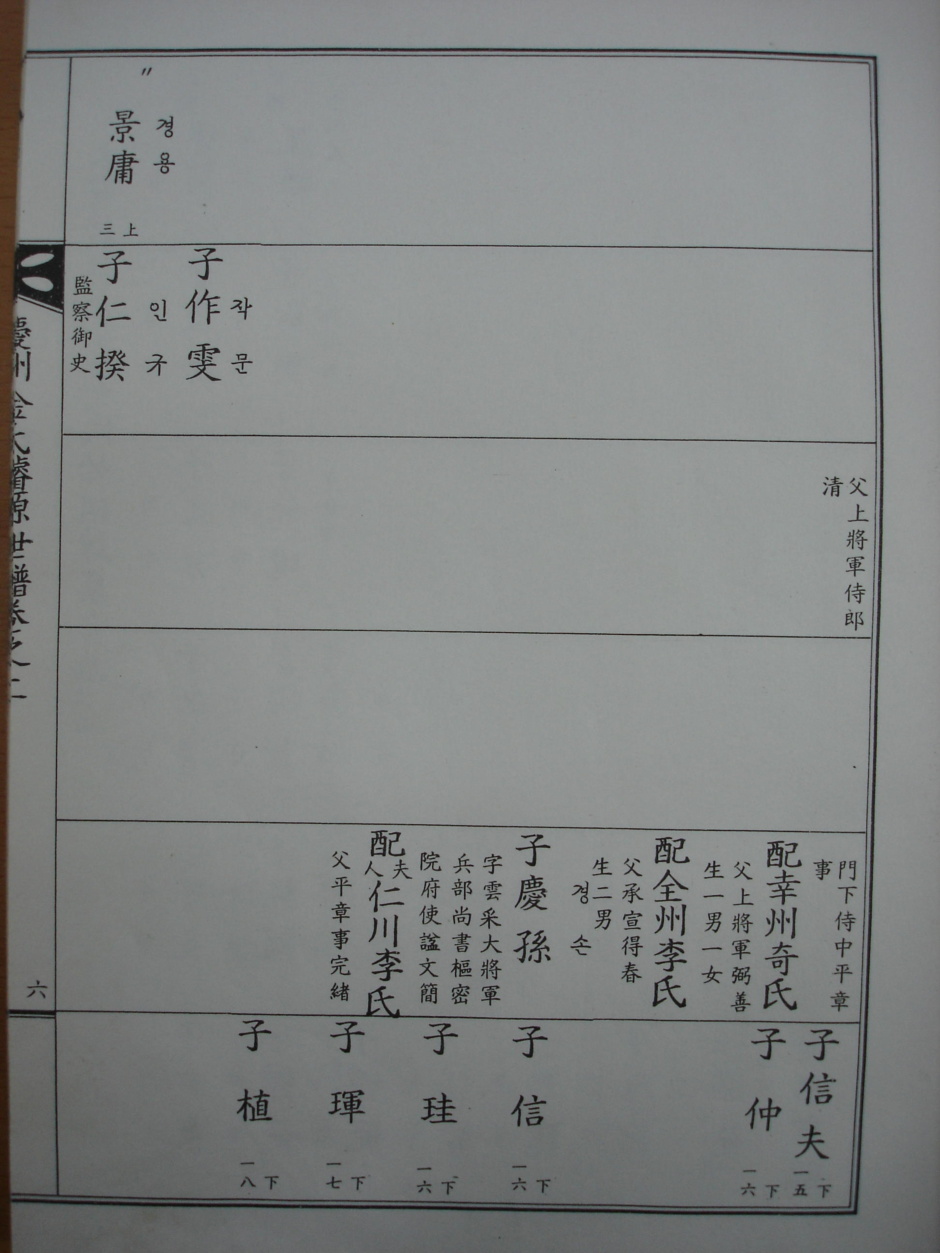 〃
景庸
경용
上三
子作雯
작문
子仁揆
인규
監察御史
父上將軍侍郎
清
門下侍中平章
事
配幸州奇氏
父上將軍弼善
生一男一女
配全州李氏
父承宣得春
生二男
子慶孫
경손
字雲采大將軍
兵部尚書樞密
院府使諡文簡
配夫人仁川李氏
父平章事完緒
子信夫
下一五
子仲
下一六
子信
下一六
子珪
下一六
子琿
下一七
子植
下一八
慶州金氏璿源世譜卷之二
六